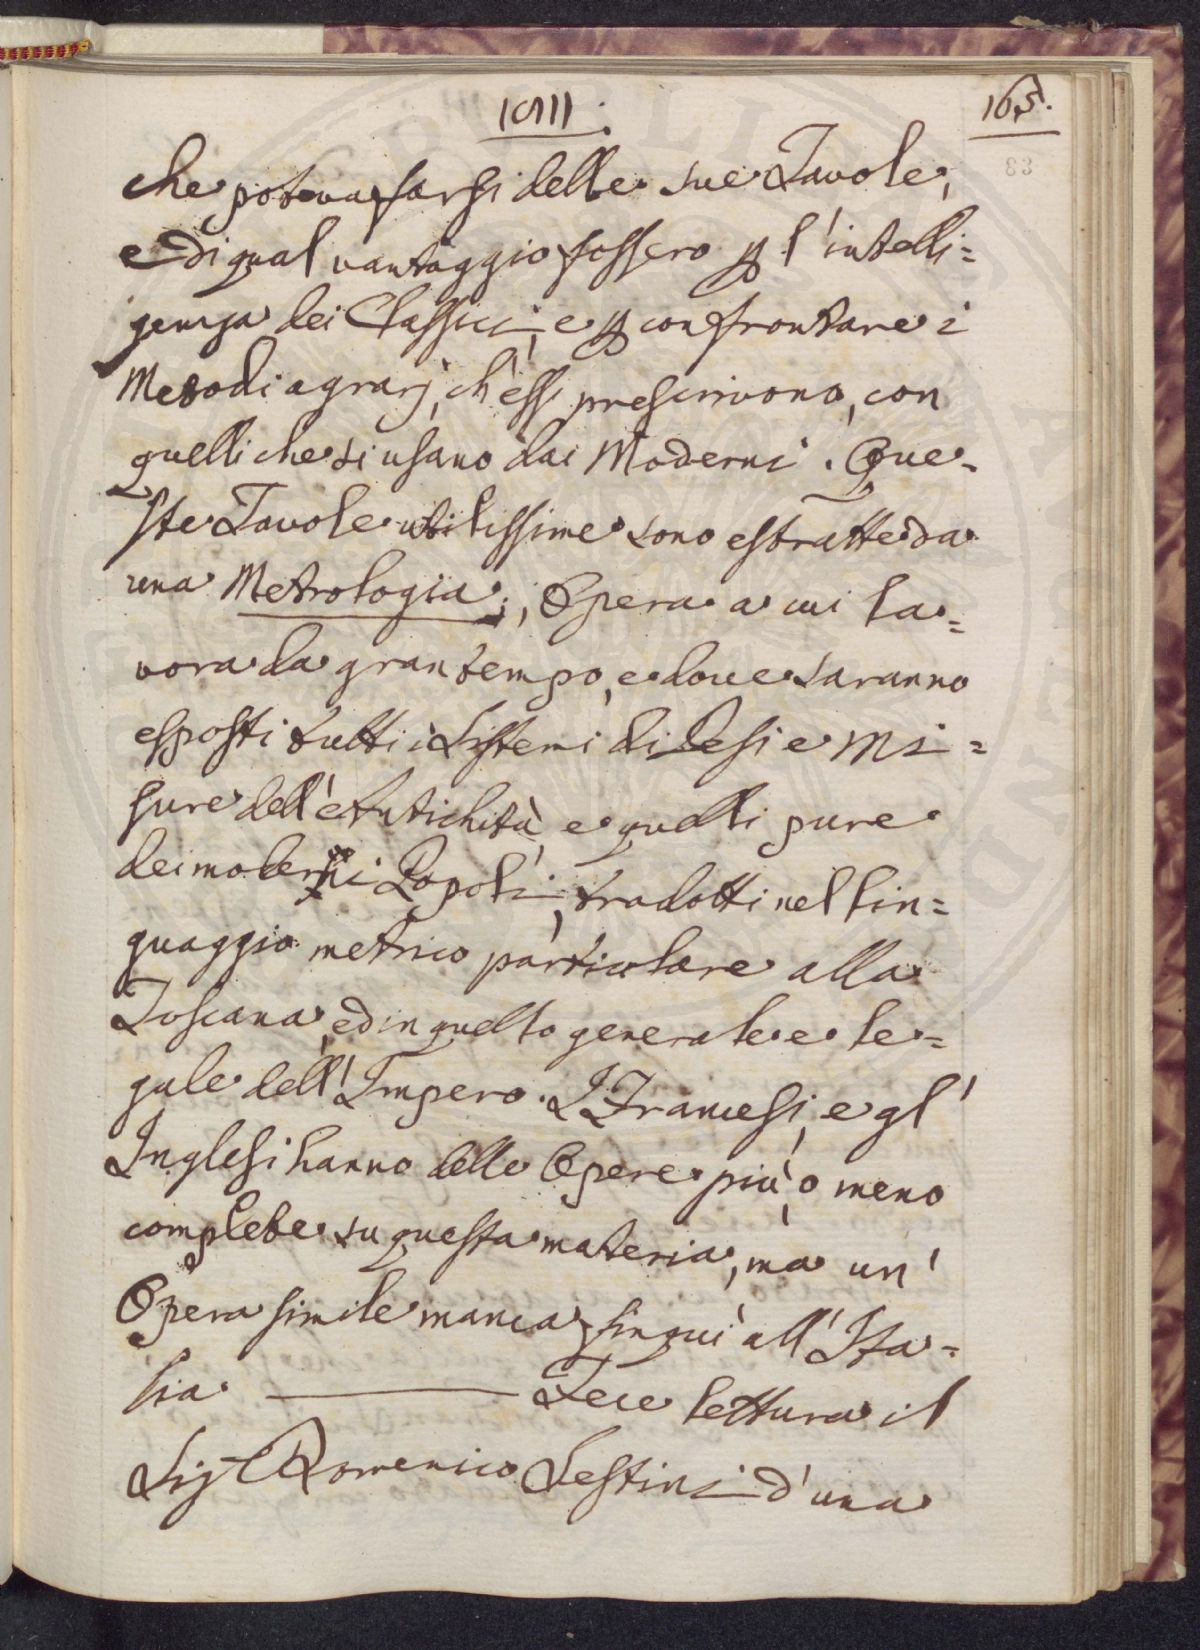 165.
83
che poteva farsi delle sue Tavole,
e di qual vantaggio fossero p l'intelli=
genza dei Classici, e p confrontare i
Metodi agrarj, ch'essi prescrivono, con
quelli che si usano dai Moderni. Que=
ste Tavole utilissime sono estratte da
una Metrologia, Opera a cui la=
vora da gran tempo, e dove saranno
esposti tutti i Sistemi di Pesi e Mi=
sure dell'Antichità, e quelli pure
dei moderni Popoli, tradotti nel lin=
guaggio metrico particolare alla
Toscana, ed in quello generale e le=
gale dell'Impero. I Francesi, e gl'
Inglesi hanno delle Opere più, o meno
complete su questa materia, ma un'
Opera simile manca finqui all'Ita=
lia. ——— Fece lettura il
Sigr Domenico Sestini d'una